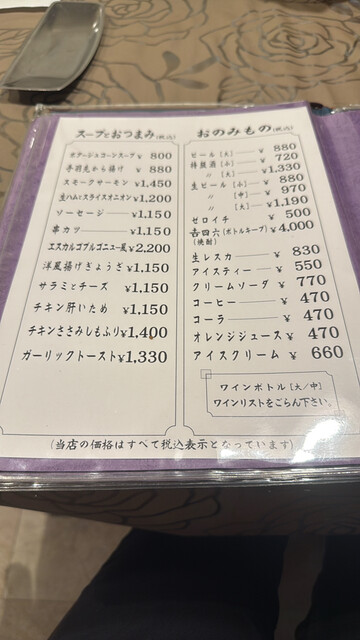 スープとおつまみ(税込)
ポタージュコーンスープ ¥ 800
手羽先から揚げ ¥ 880
スモークサーモン ¥1,450
生ハムとスライスオニオン ¥1,200
ソーセージ ¥1,150
串カツ ¥1,150
エスカルゴブルゴニュー風 ¥2,200
洋風揚げぎょうざ ¥1,150
サラミとチーズ ¥1,150
チキン肝いため ¥1,150
チキンささみしもふり ¥1,400
ガーリックトースト ¥1,330
おのみもの(税込)
ビール [大] ¥ 880
特級酒 [小] ¥ 720
〃 [大] ¥1,330
生ビール [小] ¥ 880
〃 [中] ¥ 970
〃 [大] ¥1,190
ゼロイチ ¥ 500
吉四六(ボトルキープ) ¥4,000
(焼酎)
生レスカ ¥ 830
アイスティー ¥ 550
クリームソーダ ¥ 770
コーヒー ¥ 470
コーラ ¥ 470
オレンジジュース ¥ 470
アイスクリーム ¥ 660
ワインボトル [大/中]
ワインリストをごらん下さい。
(当店の価格はすべて税込表示となっています)